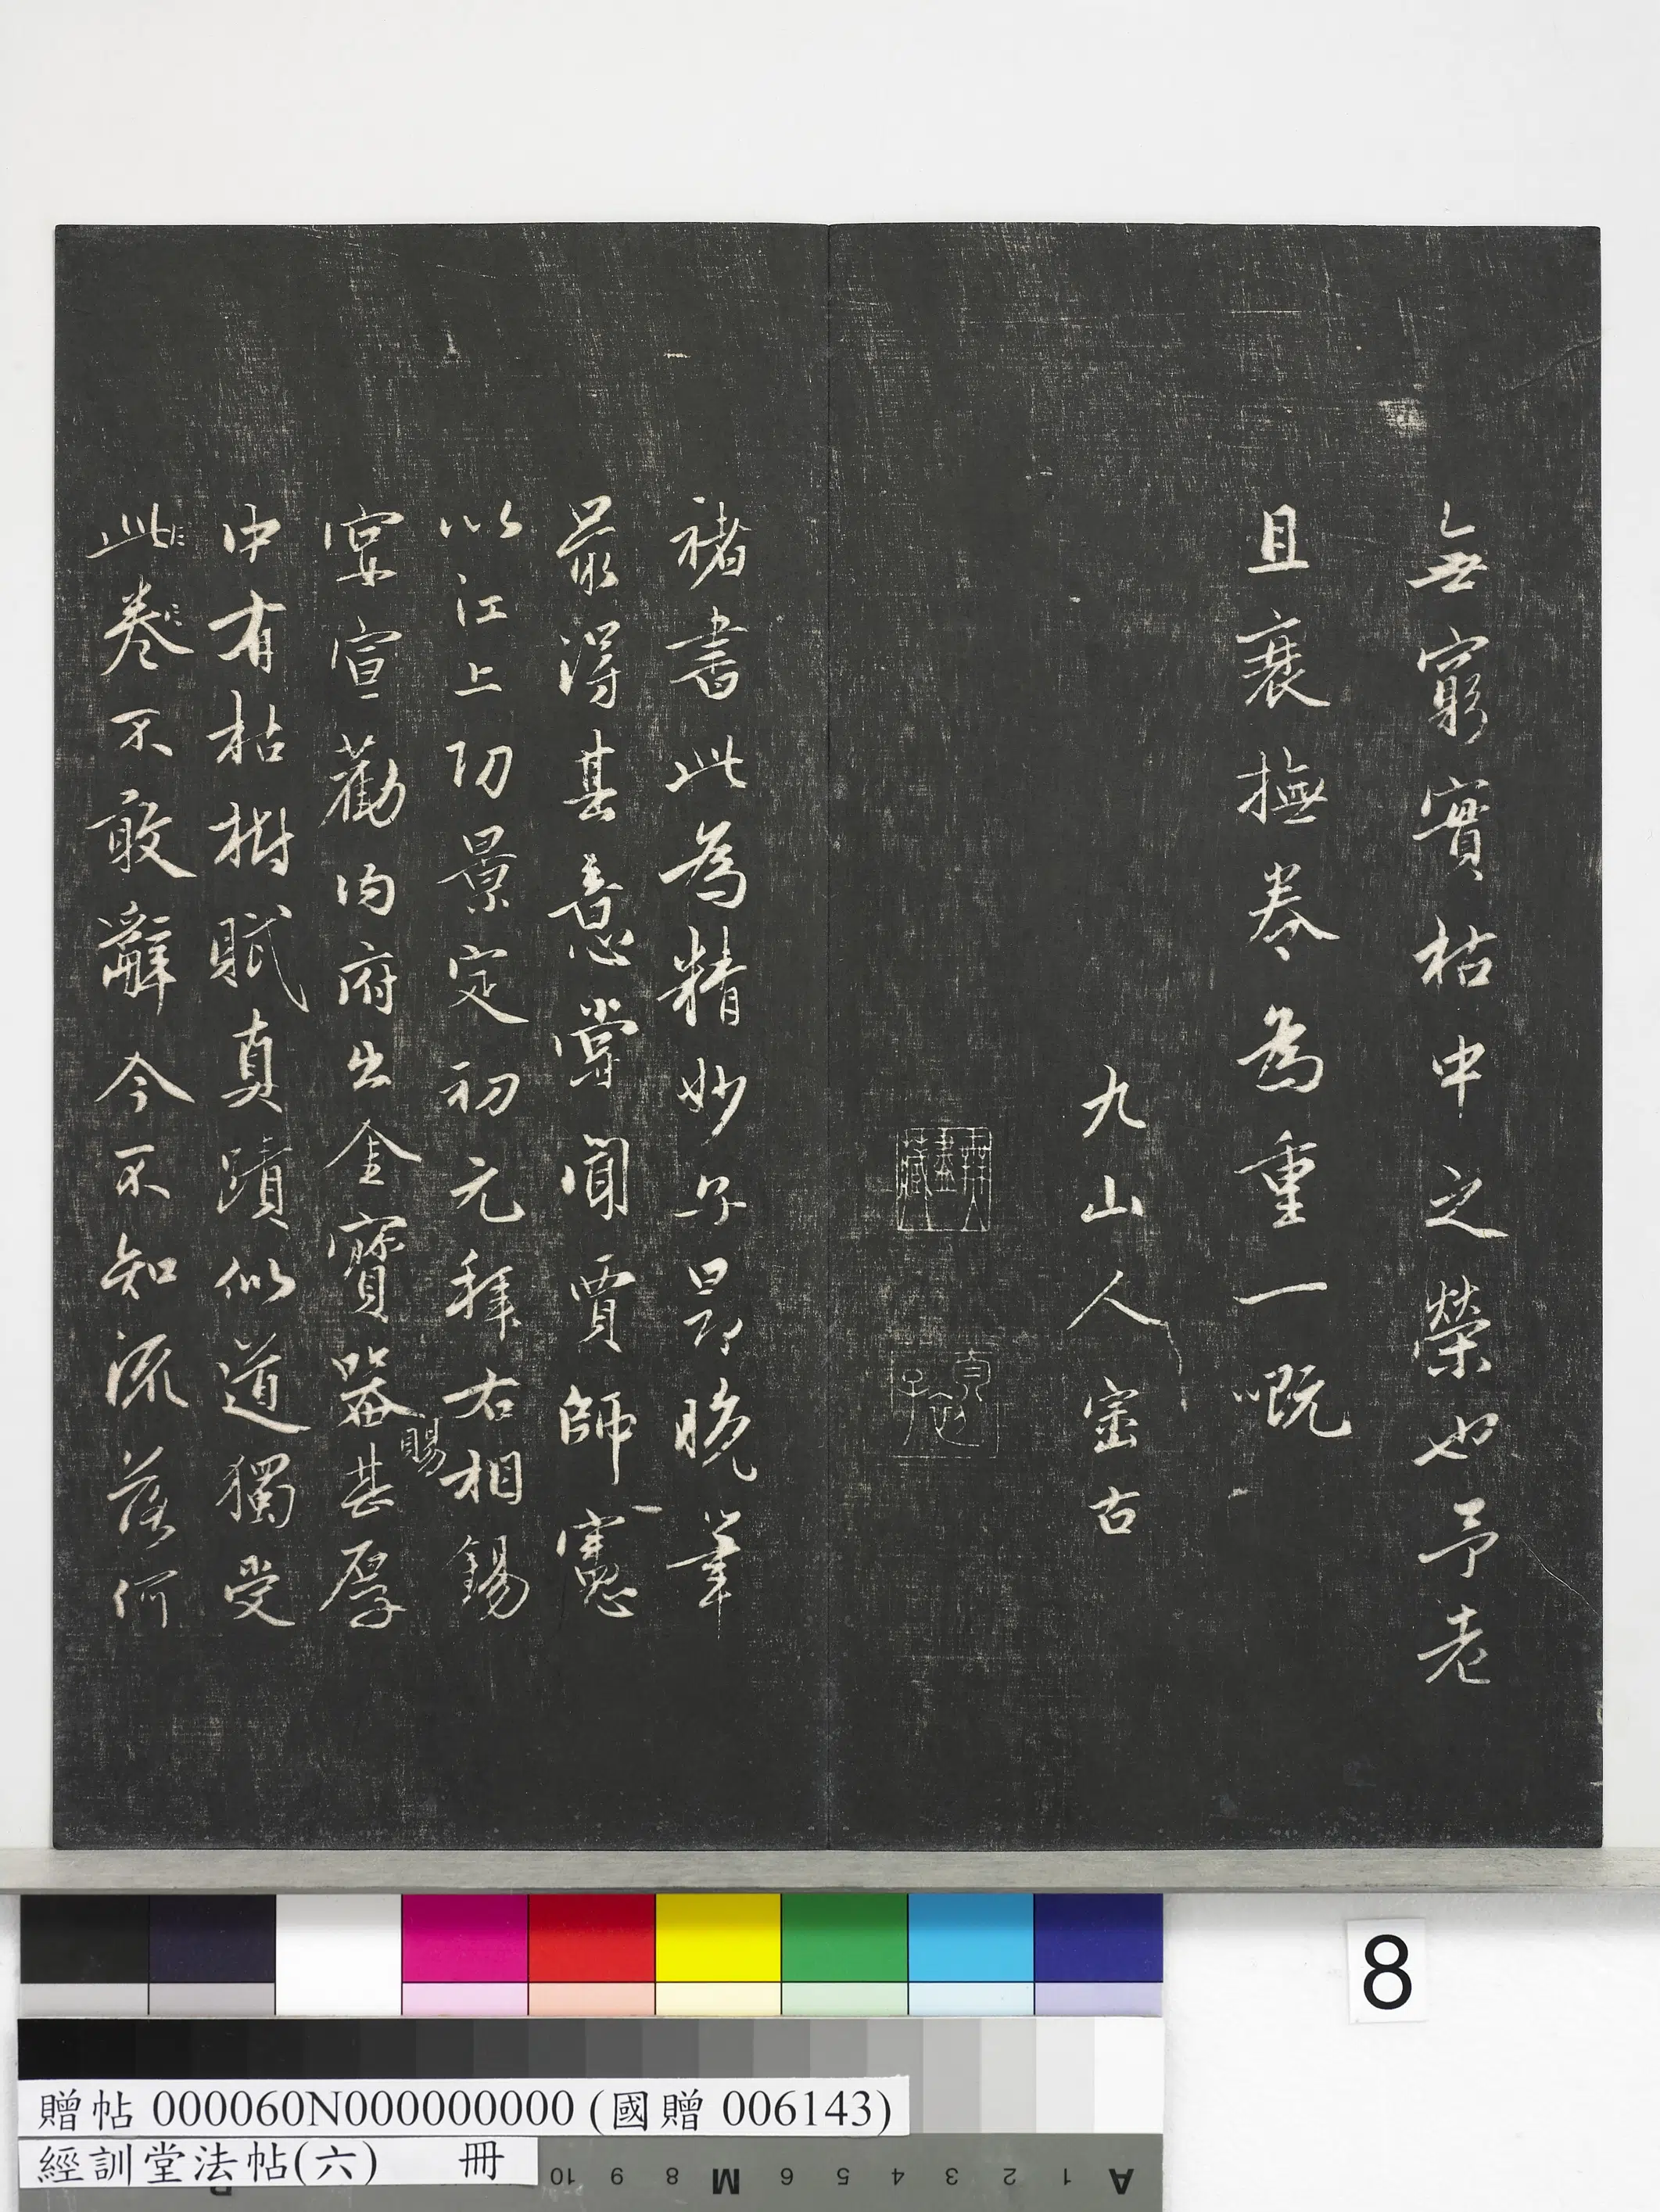 無窮實枯中之榮也予老
且衰撫卷為重一嘅
九山人古
褚書此為精妙子昂晚筆
最得其意嘗聞賈師憲
以江上功景定初元拜右相錫
宴宣勸內府出金寶器賜甚厚
中有枯樹賦真蹟似道獨受
此卷不敢辭今不知流落何
8
贈帖 000060N000000000 (國贈 006143)
經訓堂法帖(六) 冊
10 9 8 M 6 5 4 3 2 1 A